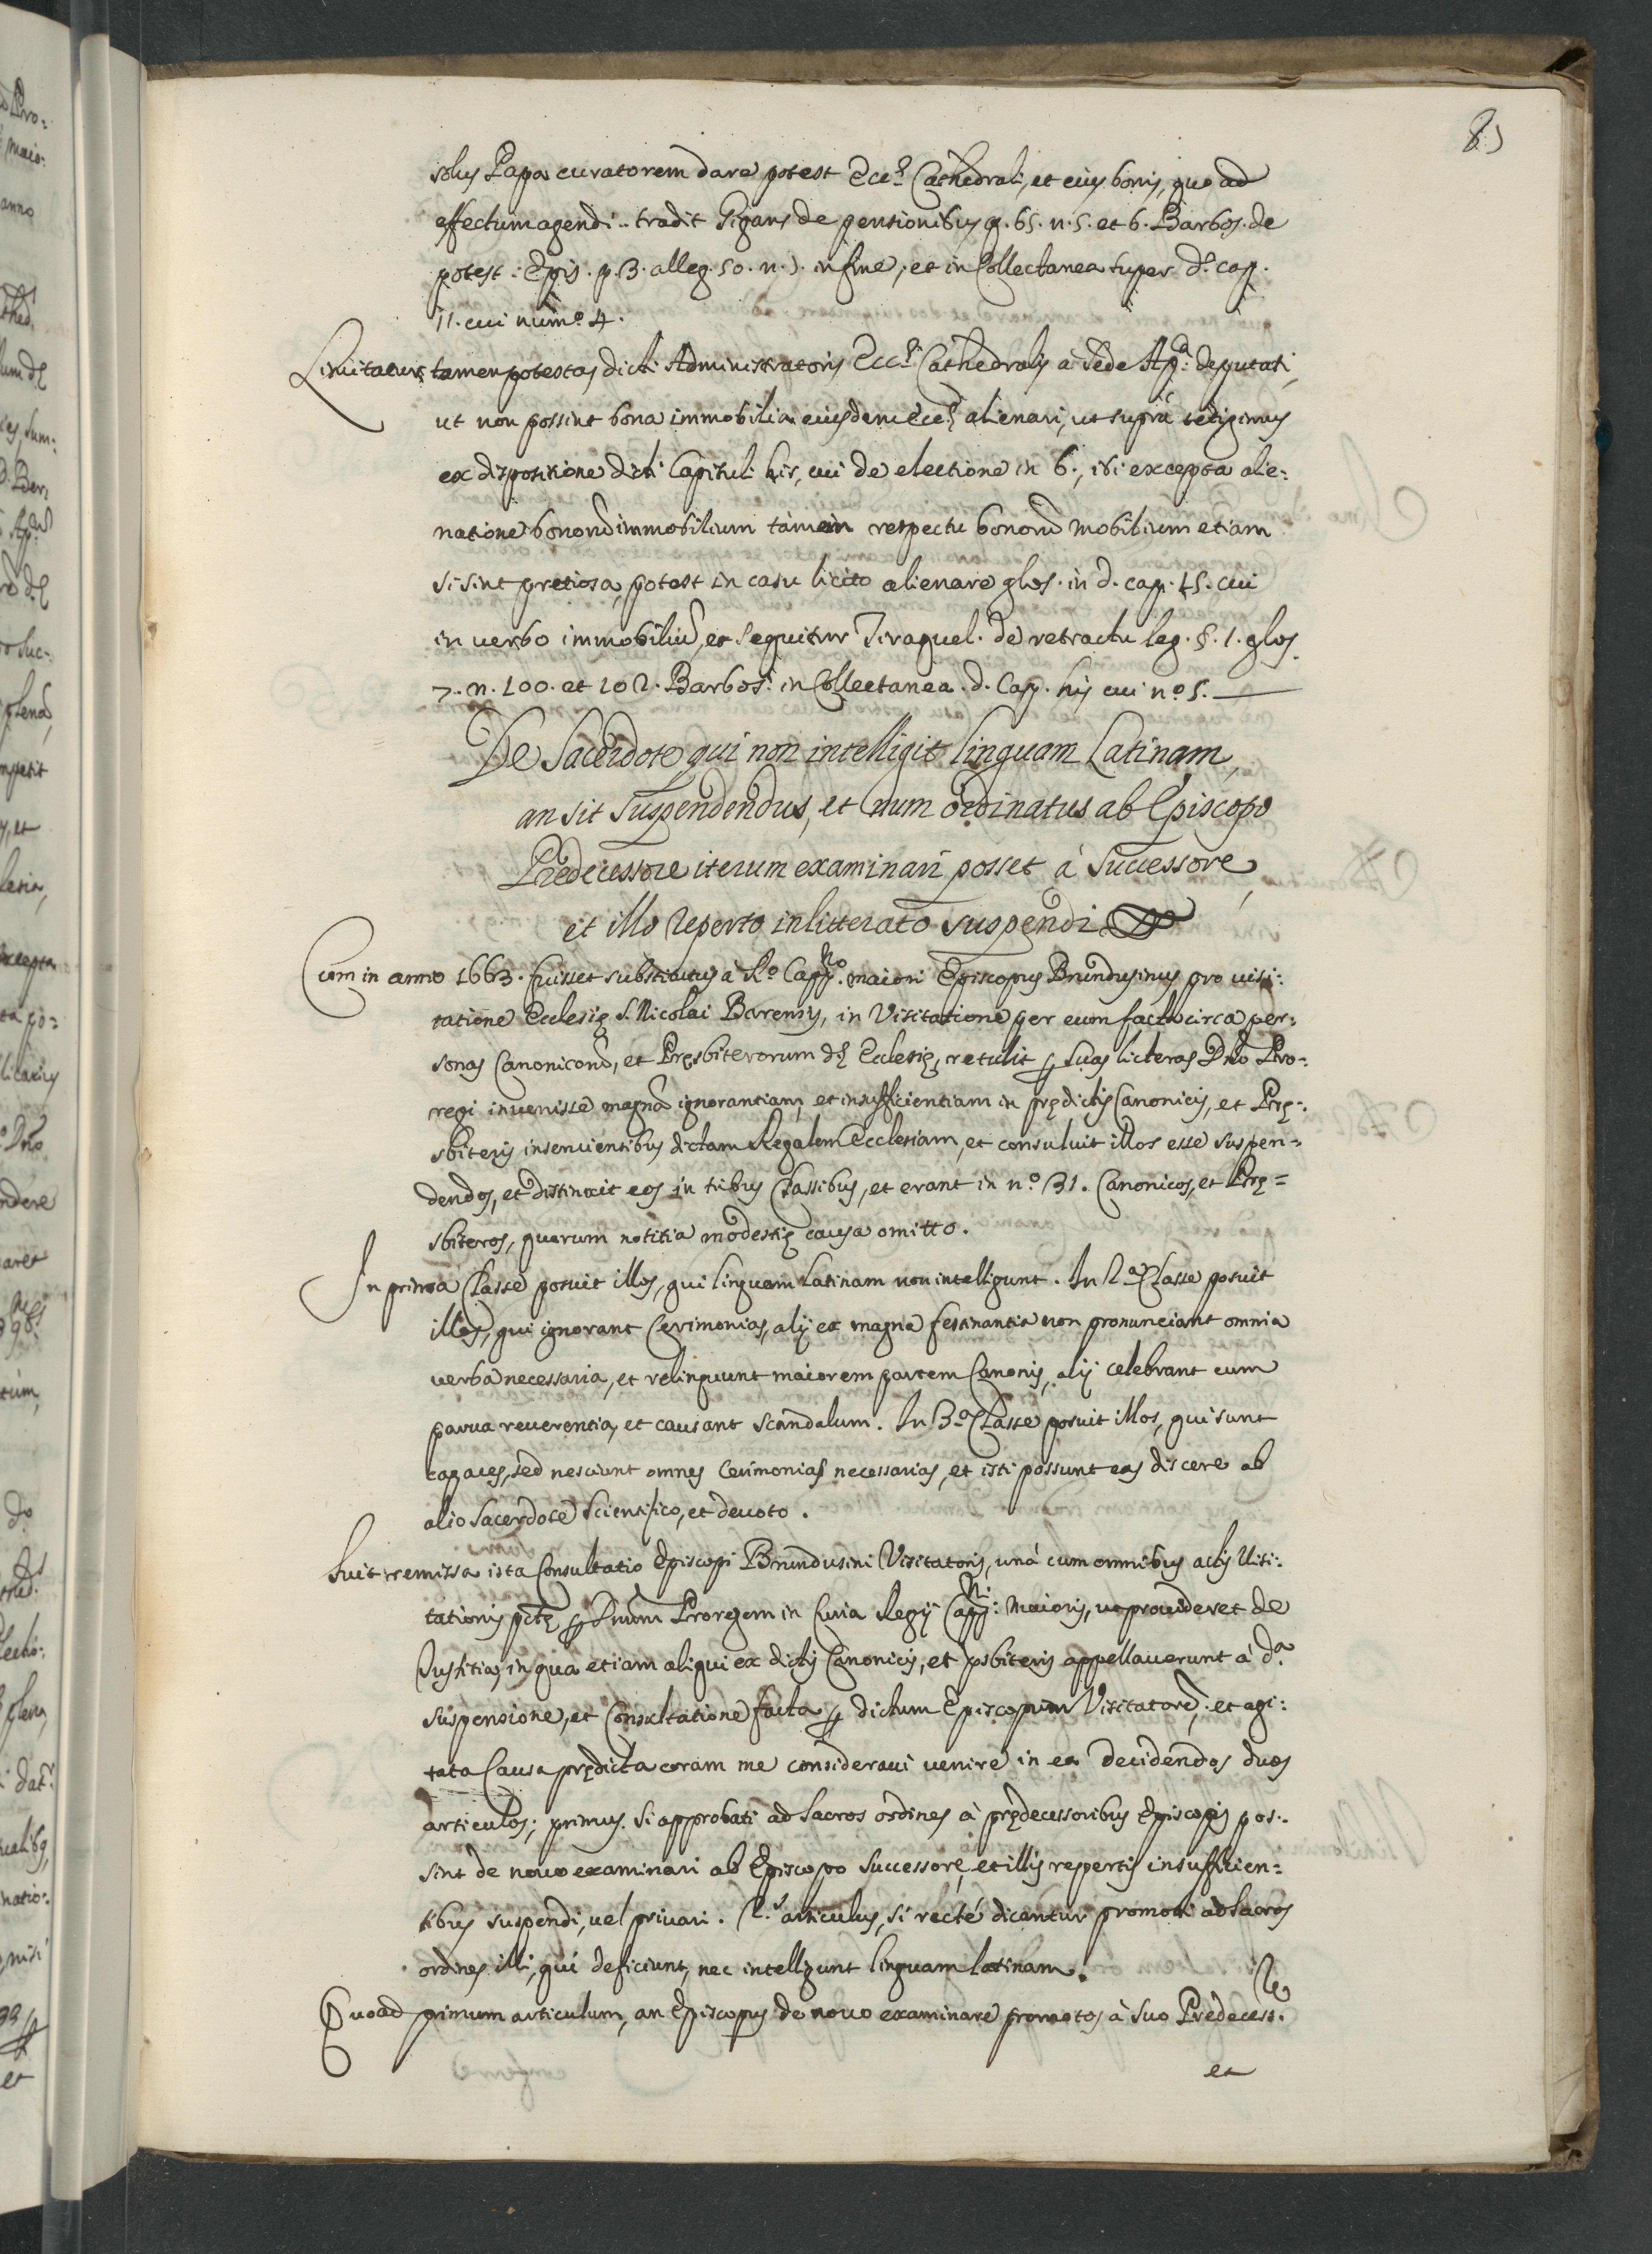 85
solus Papa curatorem dare potest Eccę Cathedrali, et eius bonis, quo ad
effectum agendi.. tradit Gigans de pensionibus q. 65. n. 5. et 6. Barbos. de
potest: Epis. p. 3. alleg. 50. n. infine, et in Collectanea super d. cap.
cui num.o 4.
Limitatur tamen potestas dicti Administratoris Eccę Cathedralis à Sede Ap.ca deputati,
ut non possint bona immobilia eiusdem Eccę alienari, ut suprà tetigimus
ex dispositione dicti Capituli his, cui de electione in 6., ibi excepta alie:
natione bonorũ immobilium tamen respectu bonorũ mobilium etiam
si sint pretiosa, potest in casu licito alienare glos. in d. cap. cui
in verbo immobiliũ, et sequitur Tiraquel. de retractu leg. §. 1. glos.
7. n. 100. et 102. Barbos. in Collectanea. d. Cap. his cui n.o 5.
De Sacerdote qui non intelligit linguam Latinam,
an sit suspendendus, et num ordinatus ab Episcopo
Predecessore iterum examinari posset à Successore,
et illo reperto inlitterato suspendi
Cum in anno 1663. fuisset substitutus à R.o Capp.no maiori Episcopus Brundusinus pro visi:
tatione Ecclesię S. Nicolai Barensis, in Visitatione per eum facta circa per:
sonas Canonicorũ, et Pręsbiterorum dę Ecclesię, retulit ꝑ suas licteras Dño Pro:
regi invenisse magnã ignorantiam, et insufficientiam in prędictis Canonicis, et Prę:
sbiteris inservientibus dictam Regalem Ecclesiam, et consuluit illos esse suspen=
dendos, et distinxit eos in tribus Classibus, et erant in n.o 31. Canonicos, et Prę=
sbiteros, quorum notitia modestię causa omitto.
In prima Classe posuit illos, qui linguam Latinam non intelligunt. In 2.a Classe posuit
illos, qui ignorant Cerimonias, alij ex magna festinantia non pronunciant omnia
verba necessaria, et relinquunt maiorem partem Canonis, alij celebrant cum
parva reverentia, et causant scandalum. In 3.a Classe posuit illos, qui sunt
capaces, sed nesciunt omnes Cerimonias necessarias, et isti possunt eas discere ab
alio Sacerdote Scientifico, et devoto.
Fuit remissa ista Consultatio Episcopi Brundusini Visitatoris, unà cum omnibus actis Visi:
tationis ꝑ Dnum Proregem in Curia Regij Capp.ni Maioris, ut provideret de
Justitia, in qua etiam aliqui ex dictis Canonicis, et psbiteris appellaverunt à d.a
suspensione, et Consultatione facta ꝑ dictum Episcopum Visitatorẽ; et agi:
tata Causa prędicta coram me consideravi venire in ea decidendos duos
articulos; primus. Si approbati ad Sacros ordines à prędecessoribus Episcopis pos:
sint de novo examinari ab Episcopo Successore, et illis repertis insufficien=
tibus suspendi, vel privari. 2.s articulus, si rectè dicantur promoti ad sacros
ordines illi, qui deficiunt, nec intelligunt linguam latinam.
Quoad primum articulum, an Episcopus de novo examinare promotos à suo Prędecess.re
et